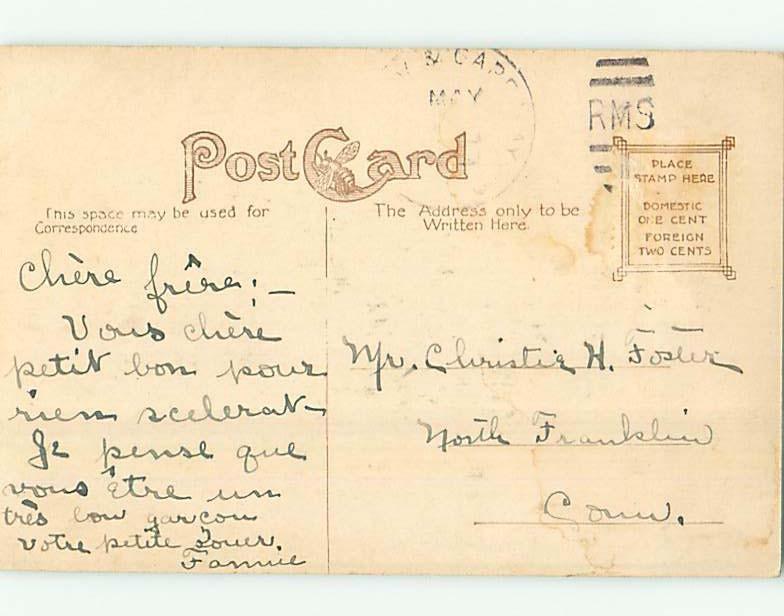 & CAPE
MAY
RMS
Post Card
PLACE
STAMP HERE
DOMESTIC
ONE CENT
FOREIGN
TWO CENTS
This space may be used for
Correspondence
The Address only to be
Written Here.
Chère frêre; —
Vous chère
petit bon pour
rien scelerat—
Je pense que
vous être un
très bon garcon
Votre petite Souer.
Fannie
Mr. Christie H. Foster
North Franklin
Conn.